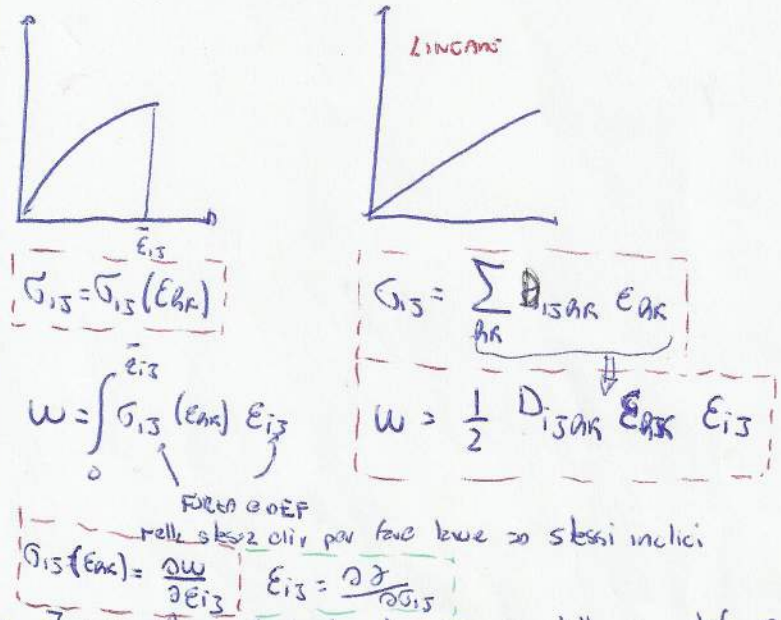 LINEARE
ε̄ij
σij = σij(εhk)
σij = ∑hk Dijhk εhk
ε̄ij
w = ∫ σij (εhk) εij
0
w = 1/2 Dijhk εhk εij
FORZA e DEF
nella stessa dir per fare lavoro => stessi indici
σij(εhk) = ∂w/∂εij
εij = ∂γ/∂σij